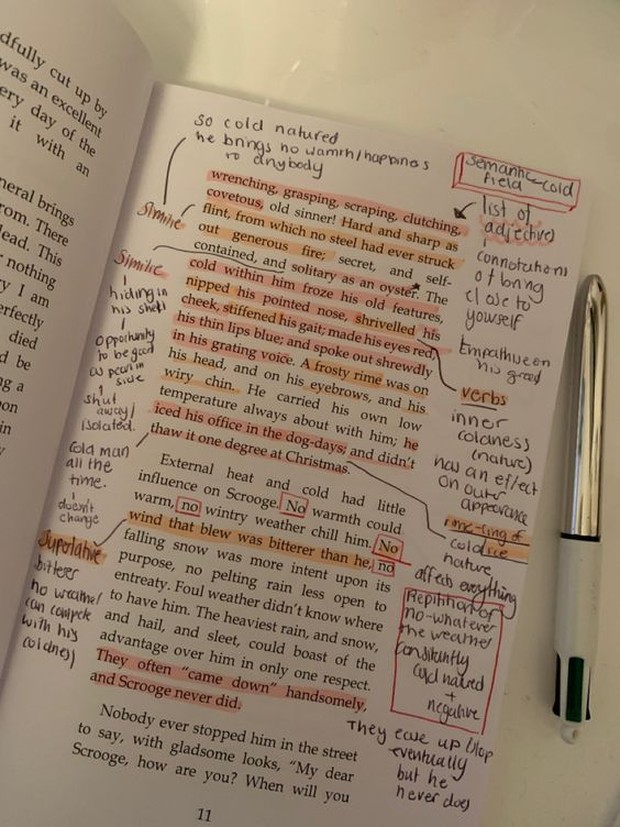 dfully cut up by
was an excellent
ery day of the
it with an
neral brings
rom. There
lead. This
nothing
y I am
erfectly
died
d be
ng a
on
in
y
so cold natured
he brings no warmth/happiness
to anybody
wrenching, grasping, scraping, clutching,
covetous, old sinner! Hard and sharp as
flint, from which no steel had ever struck
out generous fire; secret, and self-
contained, and solitary as an oyster. The
cold within him froze his old features,
nipped his pointed nose, shrivelled his
cheek, stiffened his gait; made his eyes red,
his thin lips blue; and spoke out shrewdly
in his grating voice. A frosty rime was on
his head, and on his eyebrows, and his
wiry chin. He carried his own low
temperature always about with him; he
iced his office in the dog-days; and didn't
thaw it one degree at Christmas.
External heat and cold had little
influence on Scrooge. No warmth could
warm, no wintry weather chill him. No
wind that blew was bitterer than he, no
falling snow was more intent upon its
purpose, no pelting rain less open to
entreaty. Foul weather didn't know where
to have him. The heaviest rain, and snow,
and hail, and sleet, could boast of the
advantage over him in only one respect.
They often "came down" handsomely,
and Scrooge never did.
Nobody ever stopped him in the street
to say, with gladsome looks, "My dear
Scrooge, how are you? When will you
11
Simile
Similie
hiding in
his shell
opportunity
to be good
as pearl in
side
shut
away/
isolated.
Cold man
all the
time.
doesn't
change
Superlative
bitterer
no weather
can compete
with his
coldness
semantic-cold
field
list of
adjectives
connotations
of
close to
yourself
on
his greed
verbs
inner
coldness
(nature)
has an effect
on outer
appearance
rime-ring of
cold ice
nature
affects everything
Repitition of
no-whatever
the weather
cold natured
+
negative
They ease up/stop
eventually
but he
never does